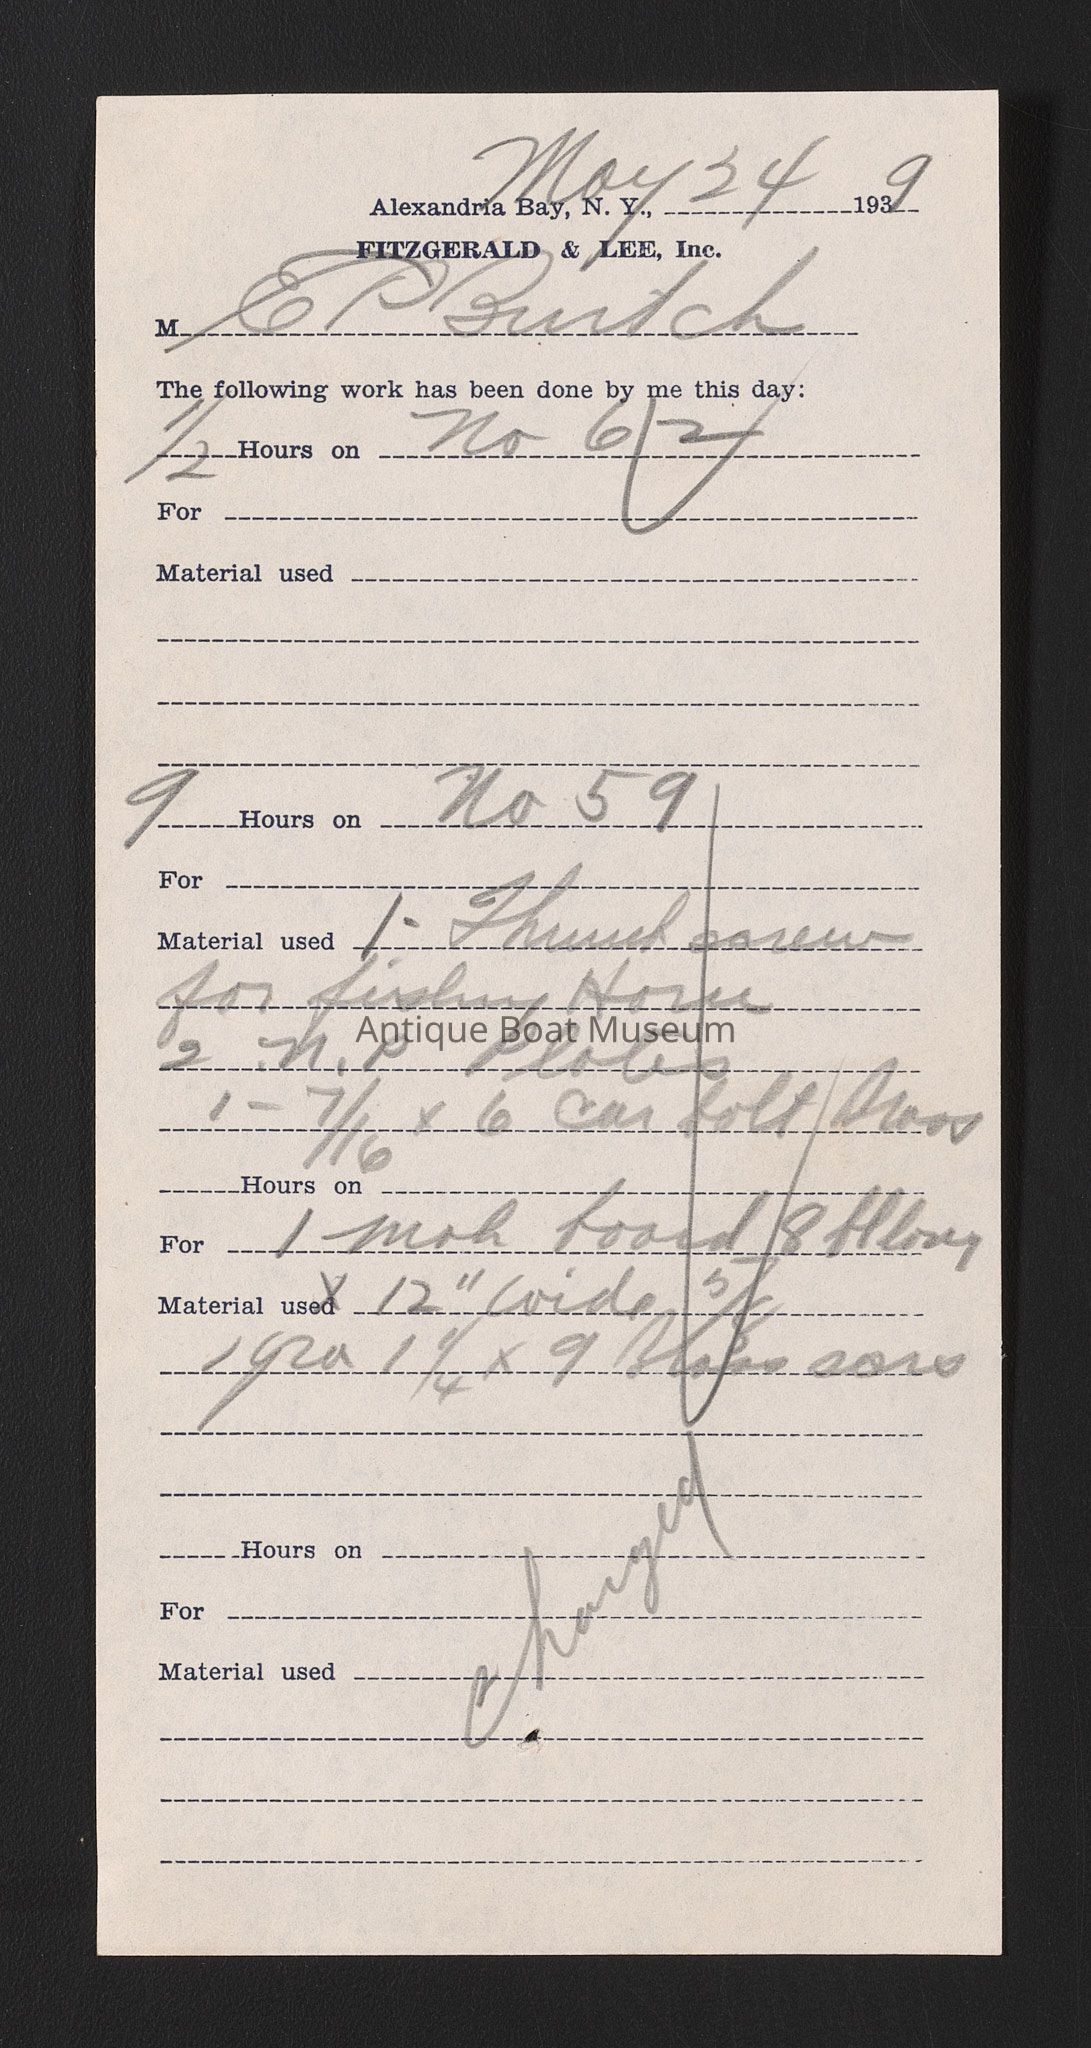 May 24 9
Alexandria Bay, N. Y., 193
FITZGERALD & LEE, Inc.
M E P Burtch
The following work has been done by me this day:
1/2 Hours on No 62
For
Material used
9 Hours on No 59
For
Material used 1- Thumb screw
for fishing Horn
Antique Boat Museum
2 N.P. Plates
1 - 7/16 x 6 Car bolt Brass
Hours on
For 1 mah board 8 ft long
Material used x 12" wide 5/8
1 gro 1 1/4 x 9 Brass scrs
Hours on
For
Material used
Charged